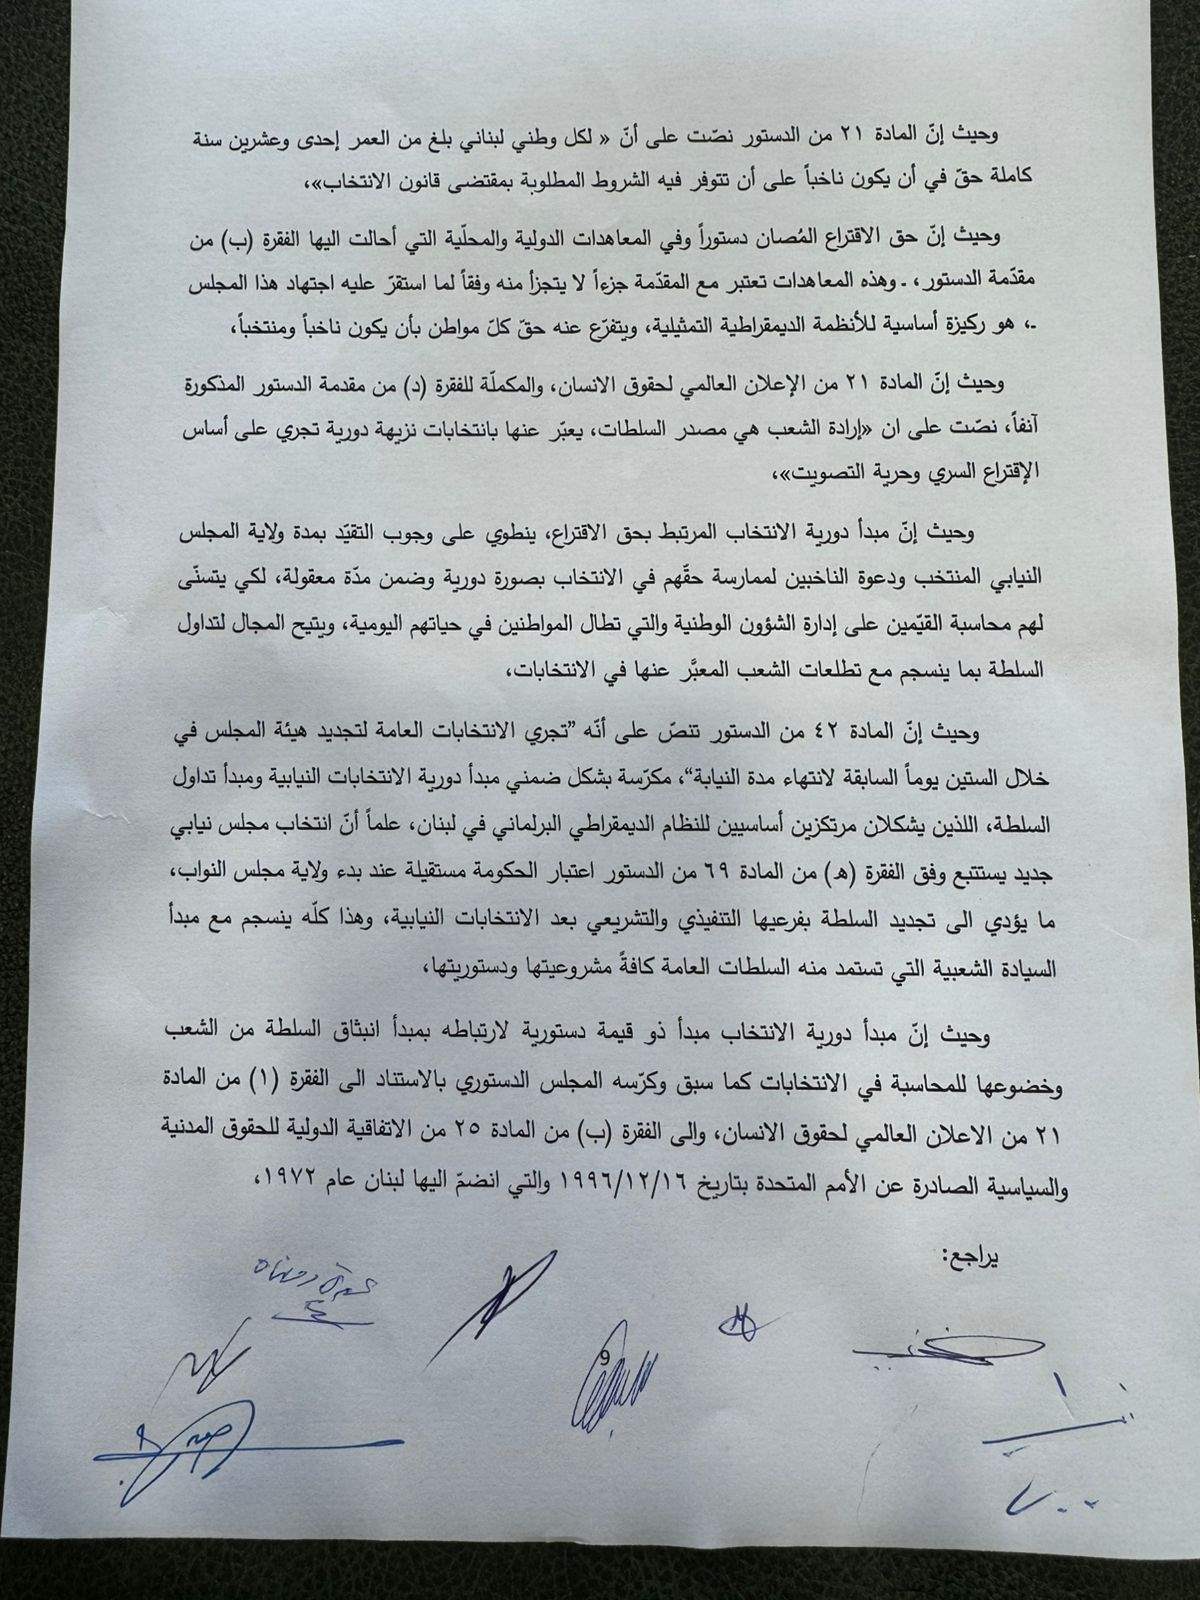 وحيث إنّ المادة ٢١ من الدستور نصّت على أنّ « لكل وطني لبناني بلغ من العمر إحدى وعشرين سنة
كاملة حقّ في أن يكون ناخباً على أن تتوفر فيه الشروط المطلوبة بمقتضى قانون الانتخاب»،
وحيث إنّ حق الاقتراع المُصان دستوراً وفي المعاهدات الدولية والمحلّية التي أحالت اليها الفقرة (ب) من
مقدّمة الدستور، ـ وهذه المعاهدات تعتبر مع المقدّمة جزءاً لا يتجزأ منه وفقاً لما استقرّ عليه اجتهاد هذا المجلس
ـ، هو ركيزة أساسية للأنظمة الديمقراطية التمثيلية، ويتفرّع عنه حقّ كلّ مواطن بأن يكون ناخباً ومنتخباً،
وحيث إنّ المادة ٢١ من الإعلان العالمي لحقوق الانسان، والمكملّة للفقرة (د) من مقدمة الدستور المذكورة
آنفاً، نصّت على ان «إرادة الشعب هي مصدر السلطات، يعبّر عنها بانتخابات نزيهة دورية تجري على أساس
الإقتراع السري وحرية التصويت»،
وحيث إنّ مبدأ دورية الانتخاب المرتبط بحق الاقتراع، ينطوي على وجوب التقيّد بمدة ولاية المجلس
النيابي المنتخب ودعوة الناخبين لممارسة حقّهم في الانتخاب بصورة دورية وضمن مدّة معقولة، لكي يتسنّى
لهم محاسبة القيّمين على إدارة الشؤون الوطنية والتي تطال المواطنين في حياتهم اليومية، ويتيح المجال لتداول
السلطة بما ينسجم مع تطلعات الشعب المعبَّر عنها في الانتخابات،
وحيث إنّ المادة ٤٢ من الدستور تنصّ على أنّه ”تجري الانتخابات العامة لتجديد هيئة المجلس في
خلال الستين يوماً السابقة لانتهاء مدة النيابة“، مكرّسة بشكل ضمني مبدأ دورية الانتخابات النيابية ومبدأ تداول
السلطة، اللذين يشكلان مرتكزين أساسيين للنظام الديمقراطي البرلماني في لبنان، علماً أنّ انتخاب مجلس نيابي
جديد يستتبع وفق الفقرة (هـ) من المادة ٦٩ من الدستور اعتبار الحكومة مستقيلة عند بدء ولاية مجلس النواب،
ما يؤدي الى تجديد السلطة بفرعيها التنفيذي والتشريعي بعد الانتخابات النيابية، وهذا كلّه ينسجم مع مبدأ
السيادة الشعبية التي تستمد منه السلطات العامة كافةً مشروعيتها ودستوريتها،
وحيث إنّ مبدأ دورية الانتخاب مبدأ ذو قيمة دستورية لارتباطه بمبدأ انبثاق السلطة من الشعب
وخضوعها للمحاسبة في الانتخابات كما سبق وكرّسه المجلس الدستوري بالاستناد الى الفقرة (١) من المادة
٢١ من الاعلان العالمي لحقوق الانسان، والى الفقرة (ب) من المادة ٢٥ من الاتفاقية الدولية للحقوق المدنية
والسياسية الصادرة عن الأمم المتحدة بتاريخ ١٩٩٦/١٢/١٦ والتي انضمّ اليها لبنان عام ١٩٧٢،
يراجع:
9